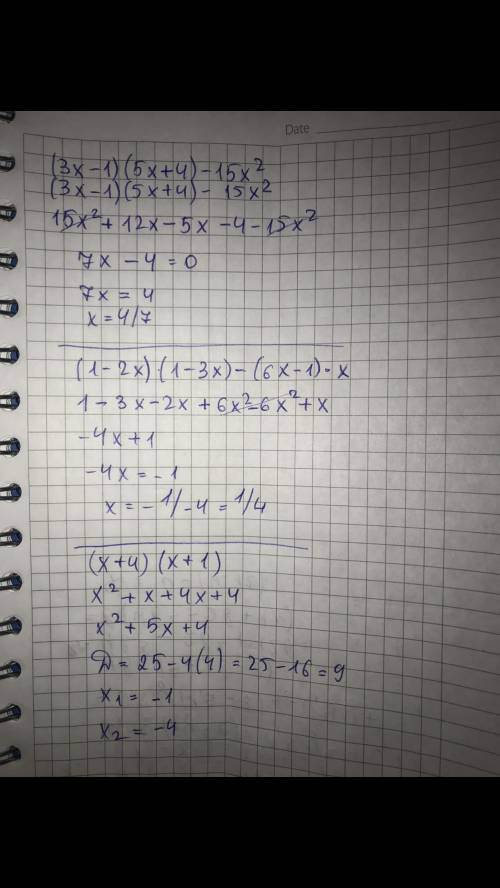 Date
(3x-1)(5x+4)-15x²
(3x-1)(5x+4)- 15x²
15x²+12x-5x-4-15x²
7x-4=0
7x=4
x=4/7
(1-2x)·(1-3x)-(6x-1)·x
1-3x-2x+6x²-6x²+x
-4x+1
-4x=-1
x=-1/-4=1/4
(x+4)(x+1)
x²+x+4x+4
x²+5x+4
D=25-4(4)=25-16=9
x₁=-1
x₂=-4